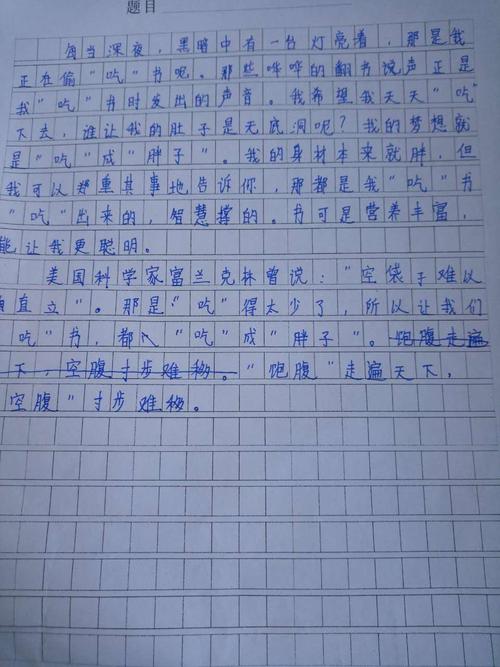 题目
每当深夜,黑暗中有一台灯亮着,那是我
正在偷"吃"书呢。那些哗哗的翻书说声正是
我"吃"书时发出的声音。我希望我天天"吃"
下去,谁让我的肚子是无底洞呢?我的梦想就
是"吃"成"胖子"。我的身材本来就胖,但
我可以郑重其事地告诉你,那都是我"吃"书
"吃"出来的,智慧撑的。书可是营养丰富,
能让我更聪明。
美国科学家富兰克林曾说:"空袋子难以
直立"。那是"吃"得太少了,所以让我们
吃"书,都"吃"成"胖子"。饱腹走遍
下,空腹寸步难移。"饱腹"走遍天下,
空腹"寸步难移。